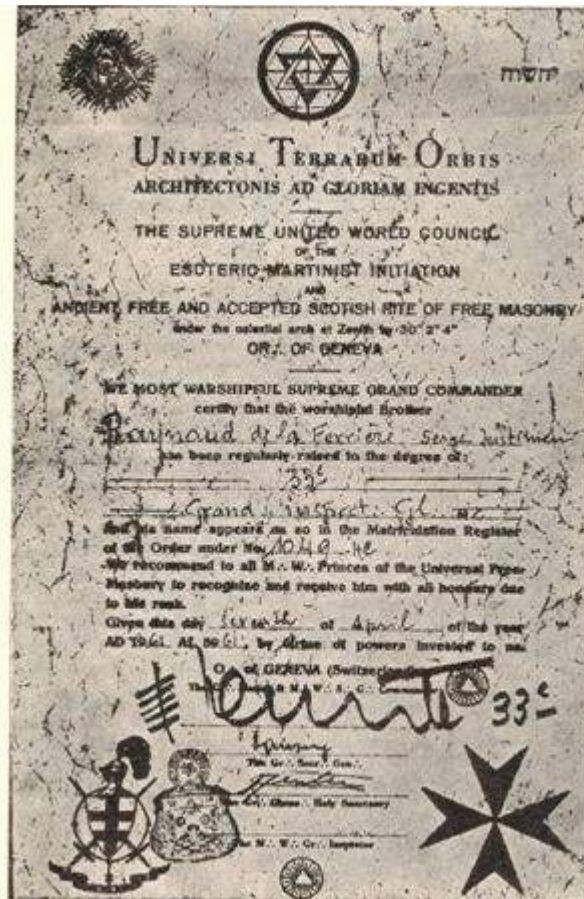 יהשוה
UNIVERSI TERRARUM ORBIS
ARCHITECTONIS AD GLORIAM INGENTIS
THE SUPREME UNITED WORLD COUNCIL
OF THE
ESOTERIC MARTINIST INITIATION
AND
ANCIENT FREE AND ACCEPTED SCOTISH RITE OF FREE MASONRY
under the celestial arch at Zenith by 30° 2' 4"
OR∴ OF GENEVA
WE MOST WARSHIPFUL SUPREME GRAND COMMANDER
certify that the worshipful Brother
Raynaud de la Ferrière Serge
has been regularly raised to the degree of:
33e
Grand Inspect. Gl.
And his name appears as so in the Matriculation Register
of the Order under No. 1049
We recommend to all M∴ W∴ Princes of the Universal Free-
Masonry to recognize and receive him with all honours due
to his rank.
Given this day of April of the year
AD 1961 AL 5961, by virtue of powers invested to me.
O∴ of GENEVA
33e
The Gr∴ Secr∴ Gen∴
Holy Sanctuary
The M∴ W∴ Gr∴ Inspector